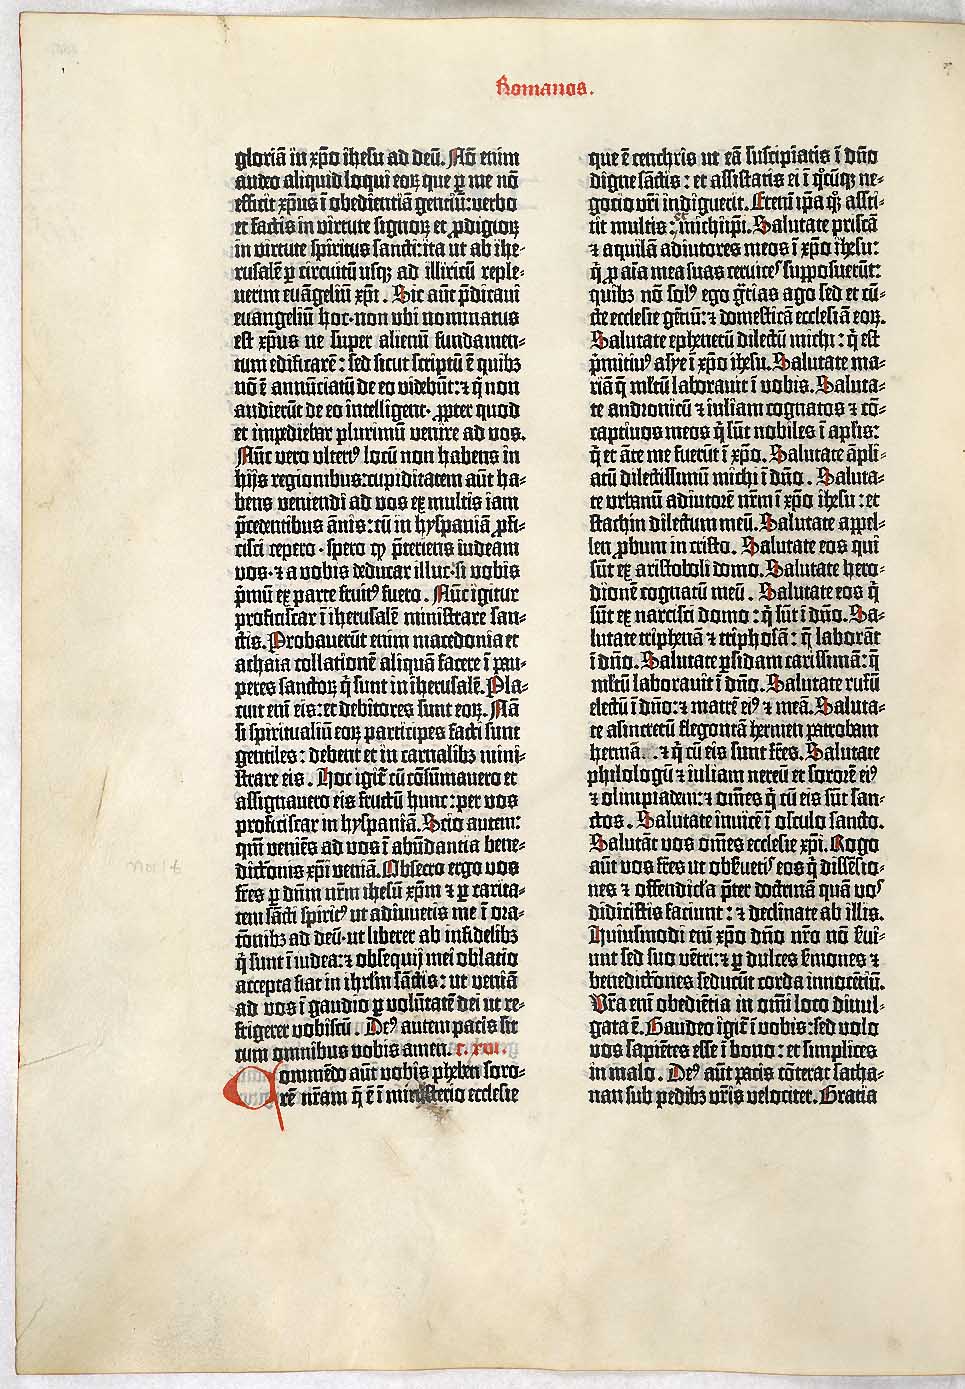 Romanos.
gloriā in xp̄o ihesu ad deū. Nō enim
audeo aliquid loqui eoꝝ que ꝑ me nō
efficit xp̄us ī obedientiā gentiū: verbo
et factis in virtute signoꝝ et ꝓdigioꝝ
in virtute spiritus sancti: ita ut ab ihe-
rusalē ꝑ circuitū usqꝫ ad illiricū reple-
uerim euāgeliū xp̄i. Sic aūt p̄dicaui
euangeliū hoc· non vbi nominatus
est xp̄us ne super alienū fundamen-
tum edificarē: sed sicut scriptū ē quibꝫ
nō ē annūciatū de eo videbūt: ⁊ q̄ non
audierūt de eo intelligent· ꝓpter quod
et impediebar plurimū venire ad vos.
Nūc vero vlteriꝰ locū non habens in
hijs regionibus: cupiditatem aūt ha-
bens veniendi ad vos ex multis iam
p̄cedentibus ānis: cū in hyspaniā ꝓfi-
cisci cepero· spero ꝙ p̄teriens uideam
vos· ⁊ a vobis deducar illuc· si vobis
p̄mū ex parte fruitꝰ fuero. Nūc igitur
proficiscar ī iherusalē ministrare san-
ctis. Probauerūt enim macedonia et
achaia collationē aliquā facere ī pau-
peres sanctoꝝ q̄ sunt in iherusalē. Pla-
cuit enī eis: et debitores sunt eoꝝ. Nā
si spiritualiū eoꝝ participes facti sunt
gentiles: debent et in carnalibꝫ mini-
strare eis. Hoc igit̄ cū cōsūmauero et
assignauero eis fructū hunc: per vos
proficiscar in hyspaniā. Scio autem:
qm̄ veniēs ad vos ī abūdantia bene-
dictōnis xp̄i veniā. Obsecro ergo vos
fr̄es ꝑ dn̄m nr̄m ihesū xp̄m ⁊ ꝑ carita-
tem sācti spiritꝰ ut adiuuetis me ī ora-
tōnibꝫ ad deū· ut liberer ab infidelibꝫ
q̄ sunt ī iudea: ⁊ obsequij mei oblatio
accepta fiat in ihrl̄m sāctis: ut veniā
ad vos ī gaudio ꝑ volūtatē dei ut re-
frigerer vobiscū. Deꝰ autem pacis sit
cum omnibus vobis amen. c. xvi.
Commēdo aūt vobis pheben soro-
rē nr̄am q̄ ē ī ministerio ecclesie
que ē cenchris ut eā suscipiatis ī dn̄o
digne sāctis: et assistatis ei ī q̊cūqꝫ ne-
gotio vr̄i indiguerit. Etenī ip̄a q̊ꝫ assti-
tit multis: et michi ip̄i. Salutate priscā
⁊ aquilā adiutores meos ī xp̄o ihesu:
q̄ ꝓ aīa mea suas ceruices supposuerūt:
quibꝫ nō solꝰ ego gr̄ias ago sed et cū-
cte ecclesie gētiū: ⁊ domesticā ecclesiā eoꝝ.
Salutate ephenetū dilectū michi: q̄ est
p̄mitiuꝰ asye ī xp̄o ihesu. Salutate ma-
riā q̄ ml̄tū laborauit ī vobis. Saluta-
te andronicū ⁊ iuliam cognatos ⁊ cō-
captiuos meos q̄ sūt nobiles ī apl̄is:
q̄ et āte me fuerūt ī xp̄o. Salutate āpli-
atū dilectissimū michi ī dn̄o. Saluta-
te urbanū adiutorē nr̄m ī xp̄o ihesu: et
stachin dilectum meū. Salutate appel-
len ꝓbum in cristo. Salutate eos qui
sūt ex aristoboli domo. Salutate hero-
dionē cognatū meū. Salutate eos q̄
sūt ex narcisci domo: q̄ sūt ī dn̄o. Sa-
lutate triphenā ⁊ triphosā: q̄ laborāt
ī dn̄o. Salutate ꝑsidam carissimā: q̄
ml̄tū laborauit ī dn̄o. Salutate rufū
electū ī dn̄o: ⁊ matrē eiꝰ ⁊ meā. Saluta-
te asincretū flegontā hermen patrobam
hermā. ⁊ q̄ cū eis sunt fr̄es. Salutate
philologū ⁊ iuliam nereū et sororē eiꝰ
⁊ olimpiadem: ⁊ om̄es q̄ cū eis sūt san-
ctos. Salutate inuicē ī osculo sancto.
Salutāt vos om̄es ecclesie xp̄i. Rogo
aūt vos fr̄es ut obẜuetis eos q̄ dissēsio-
nes ⁊ offendicl̄a p̄ter doctrinā quā vos
didicistis faciunt: ⁊ declinate ab illis.
Huiusmodi enī xp̄o dn̄o nr̄o nō ẜui-
unt sed suo vētri: ⁊ ꝑ dulces ẜmones ⁊
benedictōnes seducūt corda innocētiū.
Vr̄a enī obediētia in om̄i loco diuul-
gata ē. Gaudeo igit̄ ī vobis: sed volo
vos sapiētes esse ī bono: et simplices
in malo. Deꝰ aūt pacis cōterat satha-
nan sub pedibꝫ vr̄is velociter. Gratia